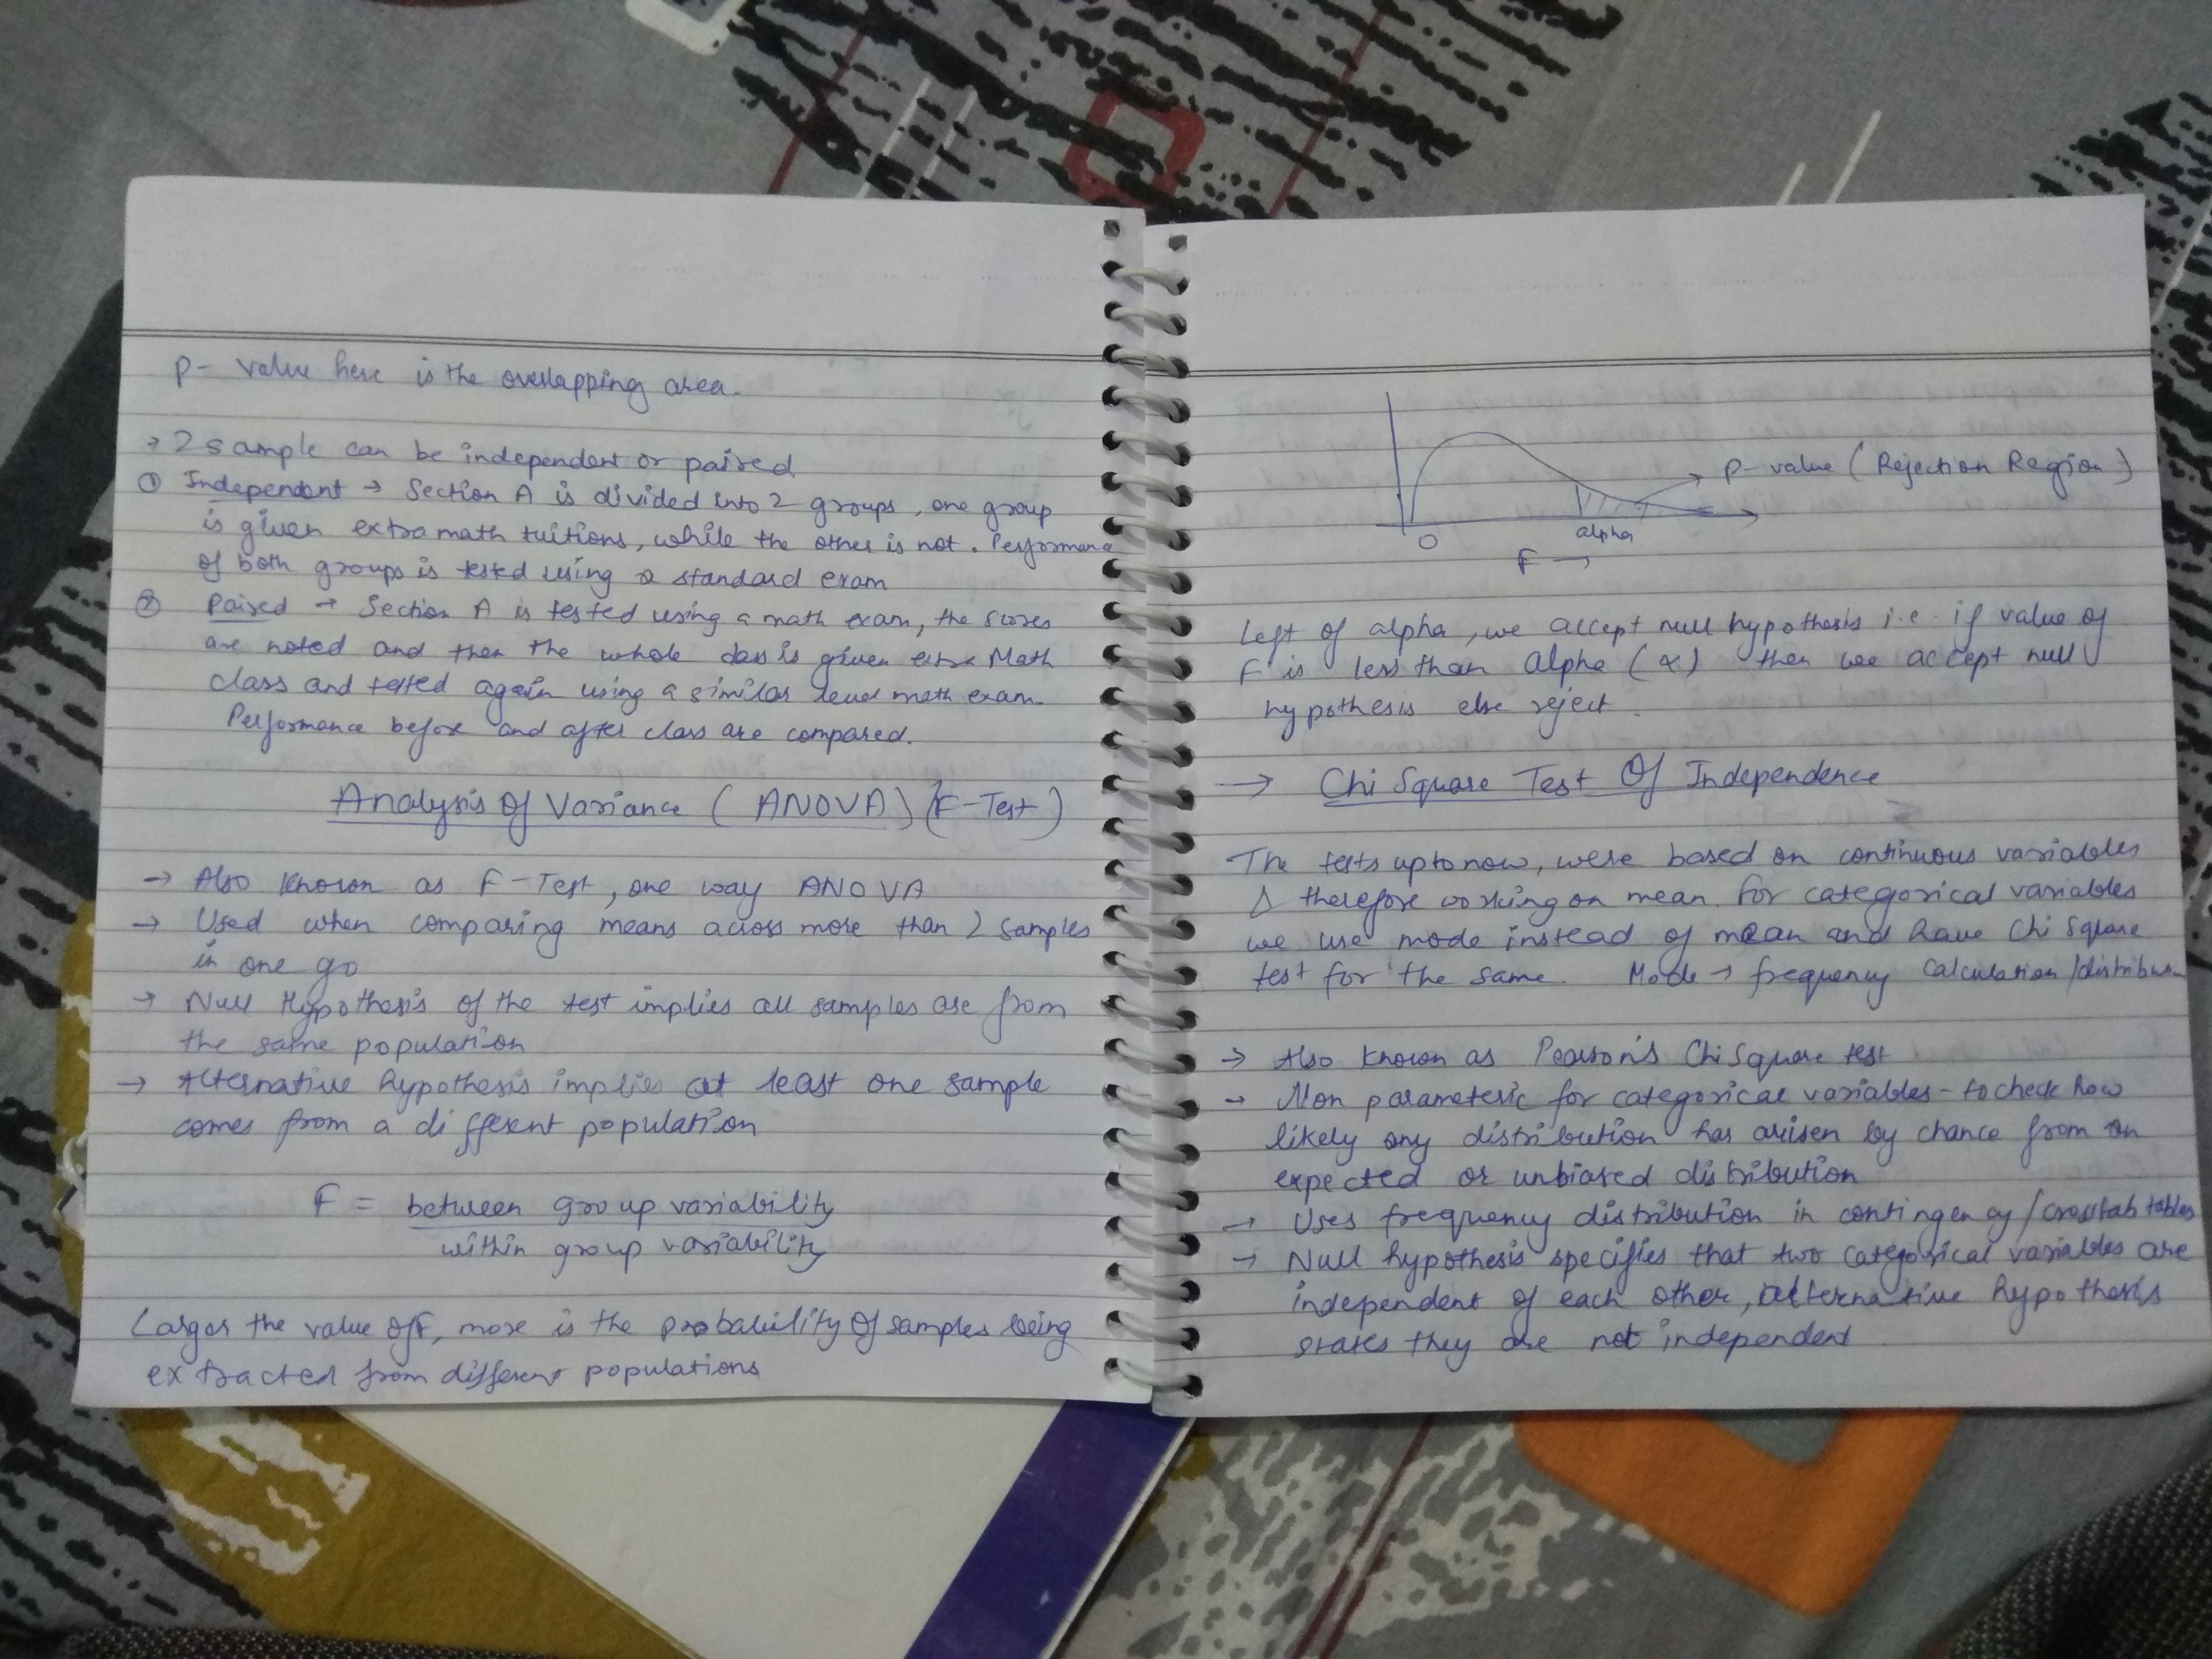 P- value here is the overlapping area.
→ 2 sample can be independent or paired
① Independent → Section A is divided into 2 groups, one group
is given extra math tuitions, while the other is not. Performance
of both groups is tested using a standard exam
② Paired → Section A is tested using a math exam, the scores
are noted and then the whole class is given extra Math
class and tested again using a similar level math exam.
Performance before and after class are compared.
Analysis Of Variance (ANOVA) (F-Test)
→ Also known as F-Test, one way ANOVA
→ Used when comparing means across more than 2 samples
in one go
→ Null Hypothesis of the test implies all samples are from
the same population
→ Alternative hypothesis implies at least one sample
comes from a different population
F = between group variability
within group variability
Larger the value of F, more is the probability of samples being
extracted from different populations
P- value (Rejection Region)
0
alpha
F →
Left of alpha, we accept null hypothesis i.e. if value of
F is less than alpha (α) then we accept null
hypothesis else reject.
→ Chi Square Test Of Independence
The tests upto now, were based on continuous variables
& therefore working on mean. For categorical variables
we use mode instead of mean and have Chi Square
test for the same. Mode → frequency calculation/distribution
→ Also known as Pearson's Chi Square test
→ Non parameteric for categorical variables - to check how
likely any distribution has arisen by chance from an
expected or unbiased distribution
→ Uses frequency distribution in contingency/crosstab tables
→ Null hypothesis specifies that two categorical variables are
independent of each other, alternative hypothesis
states they are not independent